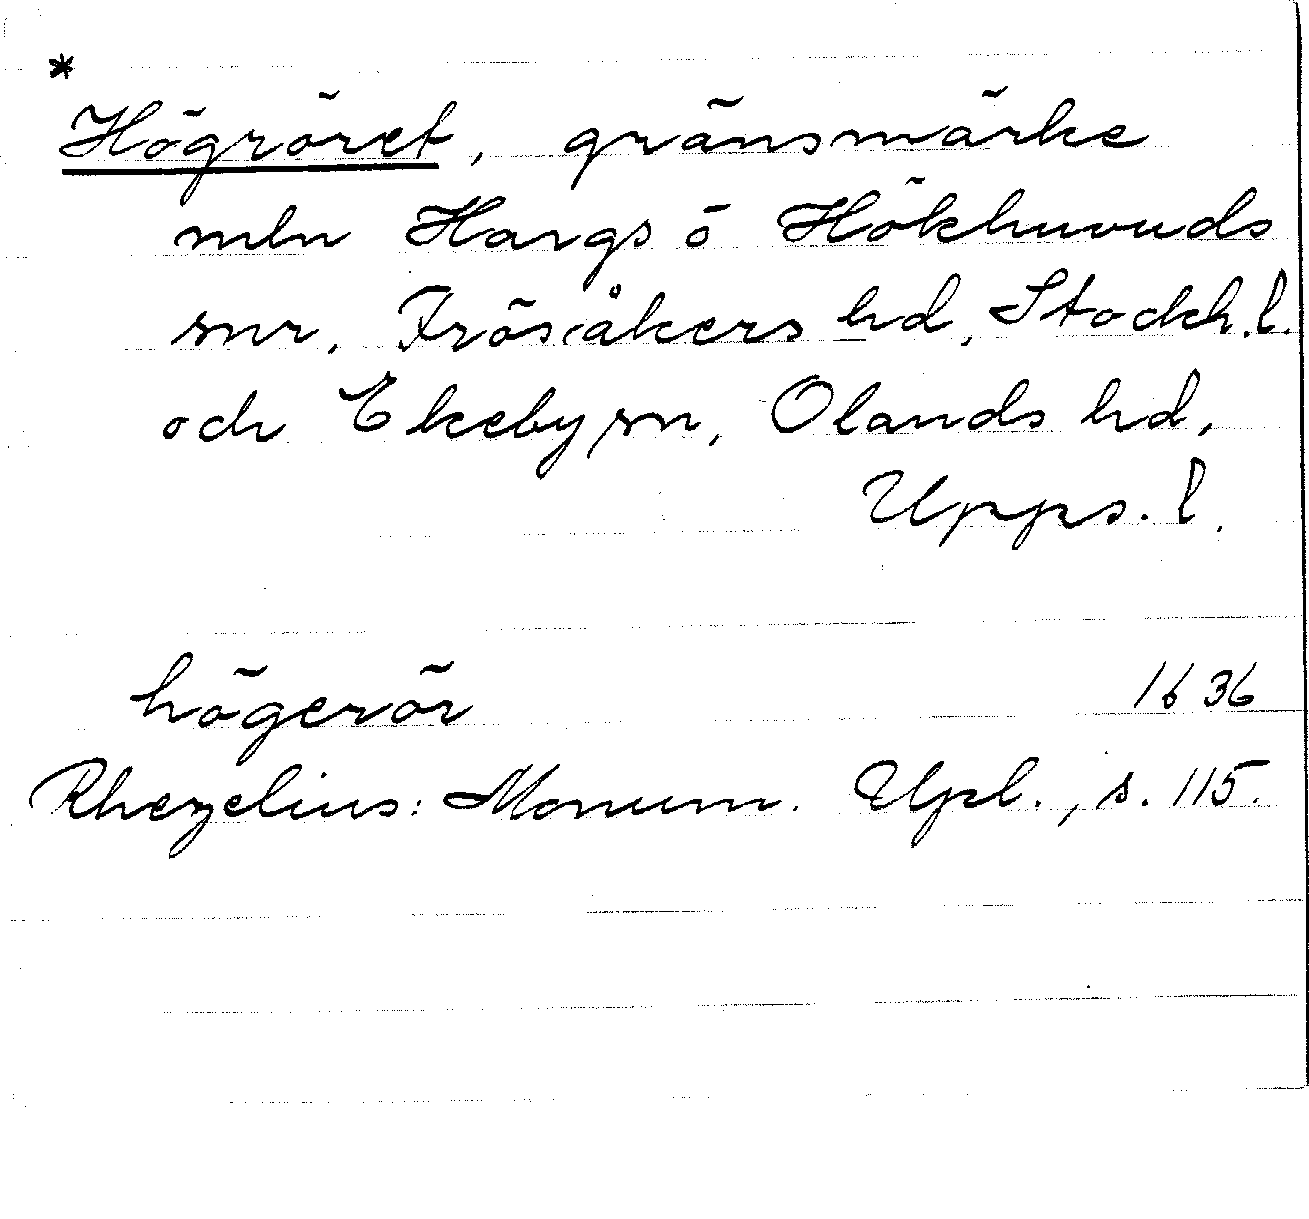 *
Högröret, gränsmärke
mln Hargs ö Hökhuvuds
snr, Frösåkers hd, Stockh. l.
och Ekeby sn, Olands hd,
Upps. l.
högerör 1636
Rhezelius: Monum. Upl., s. 115.